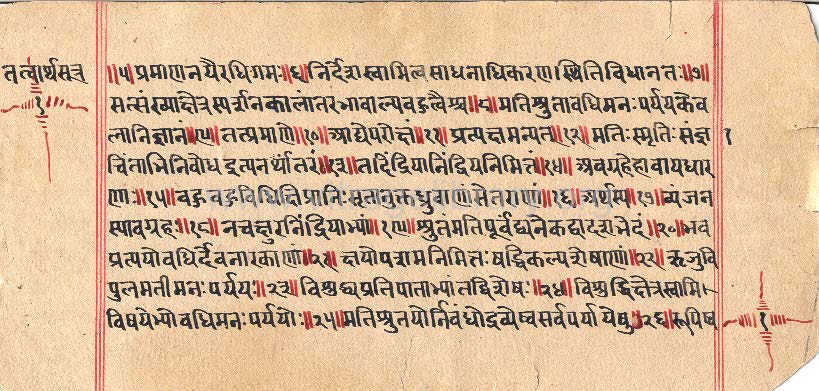 तत्वार्थसूत्र
॥५॥प्रमाणनयैरधिगमः॥६॥निर्देशस्वामित्वसाधनाधिकरणस्थितिविधानतः॥७॥
सत्संख्याक्षेत्रस्पर्शनकालांतरभावाल्पबहुत्वैश्च॥८॥मतिश्रुतावधिमनःपर्ययकेव
लानिज्ञानं॥९॥तत्प्रमाणे॥१०॥आद्येपरोक्षं॥११॥प्रत्यक्षमन्यत्॥१२॥मतिःस्मृतिःसंज्ञा
चिंताभिनिबोधइत्यनर्थांतरं॥१३॥तदिंद्रियानिंद्रियनिमित्तं॥१४॥अवग्रहेहावायधार
णाः॥१५॥बहुबहुविधिक्षिप्रानिःसृतानुक्तध्रुवाणंसेतराणां॥१६॥अर्थस्य॥१७॥व्यंजन
स्यावग्रहः॥१८॥नचक्षुरनिंद्रियाभ्यां॥१९॥श्रुतंमतिपूर्वंद्व्यनेकद्वादशभेदं॥२०॥भव
प्रत्ययोवधिर्देवनारकाणां॥२१॥क्षयोपशमनिमित्तःषड्विकल्पःशेषाणां॥२२॥ऋजुवि
पुलमतीमनःपर्ययः॥२३॥विशुद्ध्यप्रतिपाताभ्यांतद्विशेषः॥२४॥विशुद्धिक्षेत्रस्वामि
विषयेभ्योवधिमनःपर्यययोः॥२५॥मतिश्रुतयोर्निबंधोद्रव्येष्वसर्वपर्यायेषु॥२६॥रूपिष्व
१
१